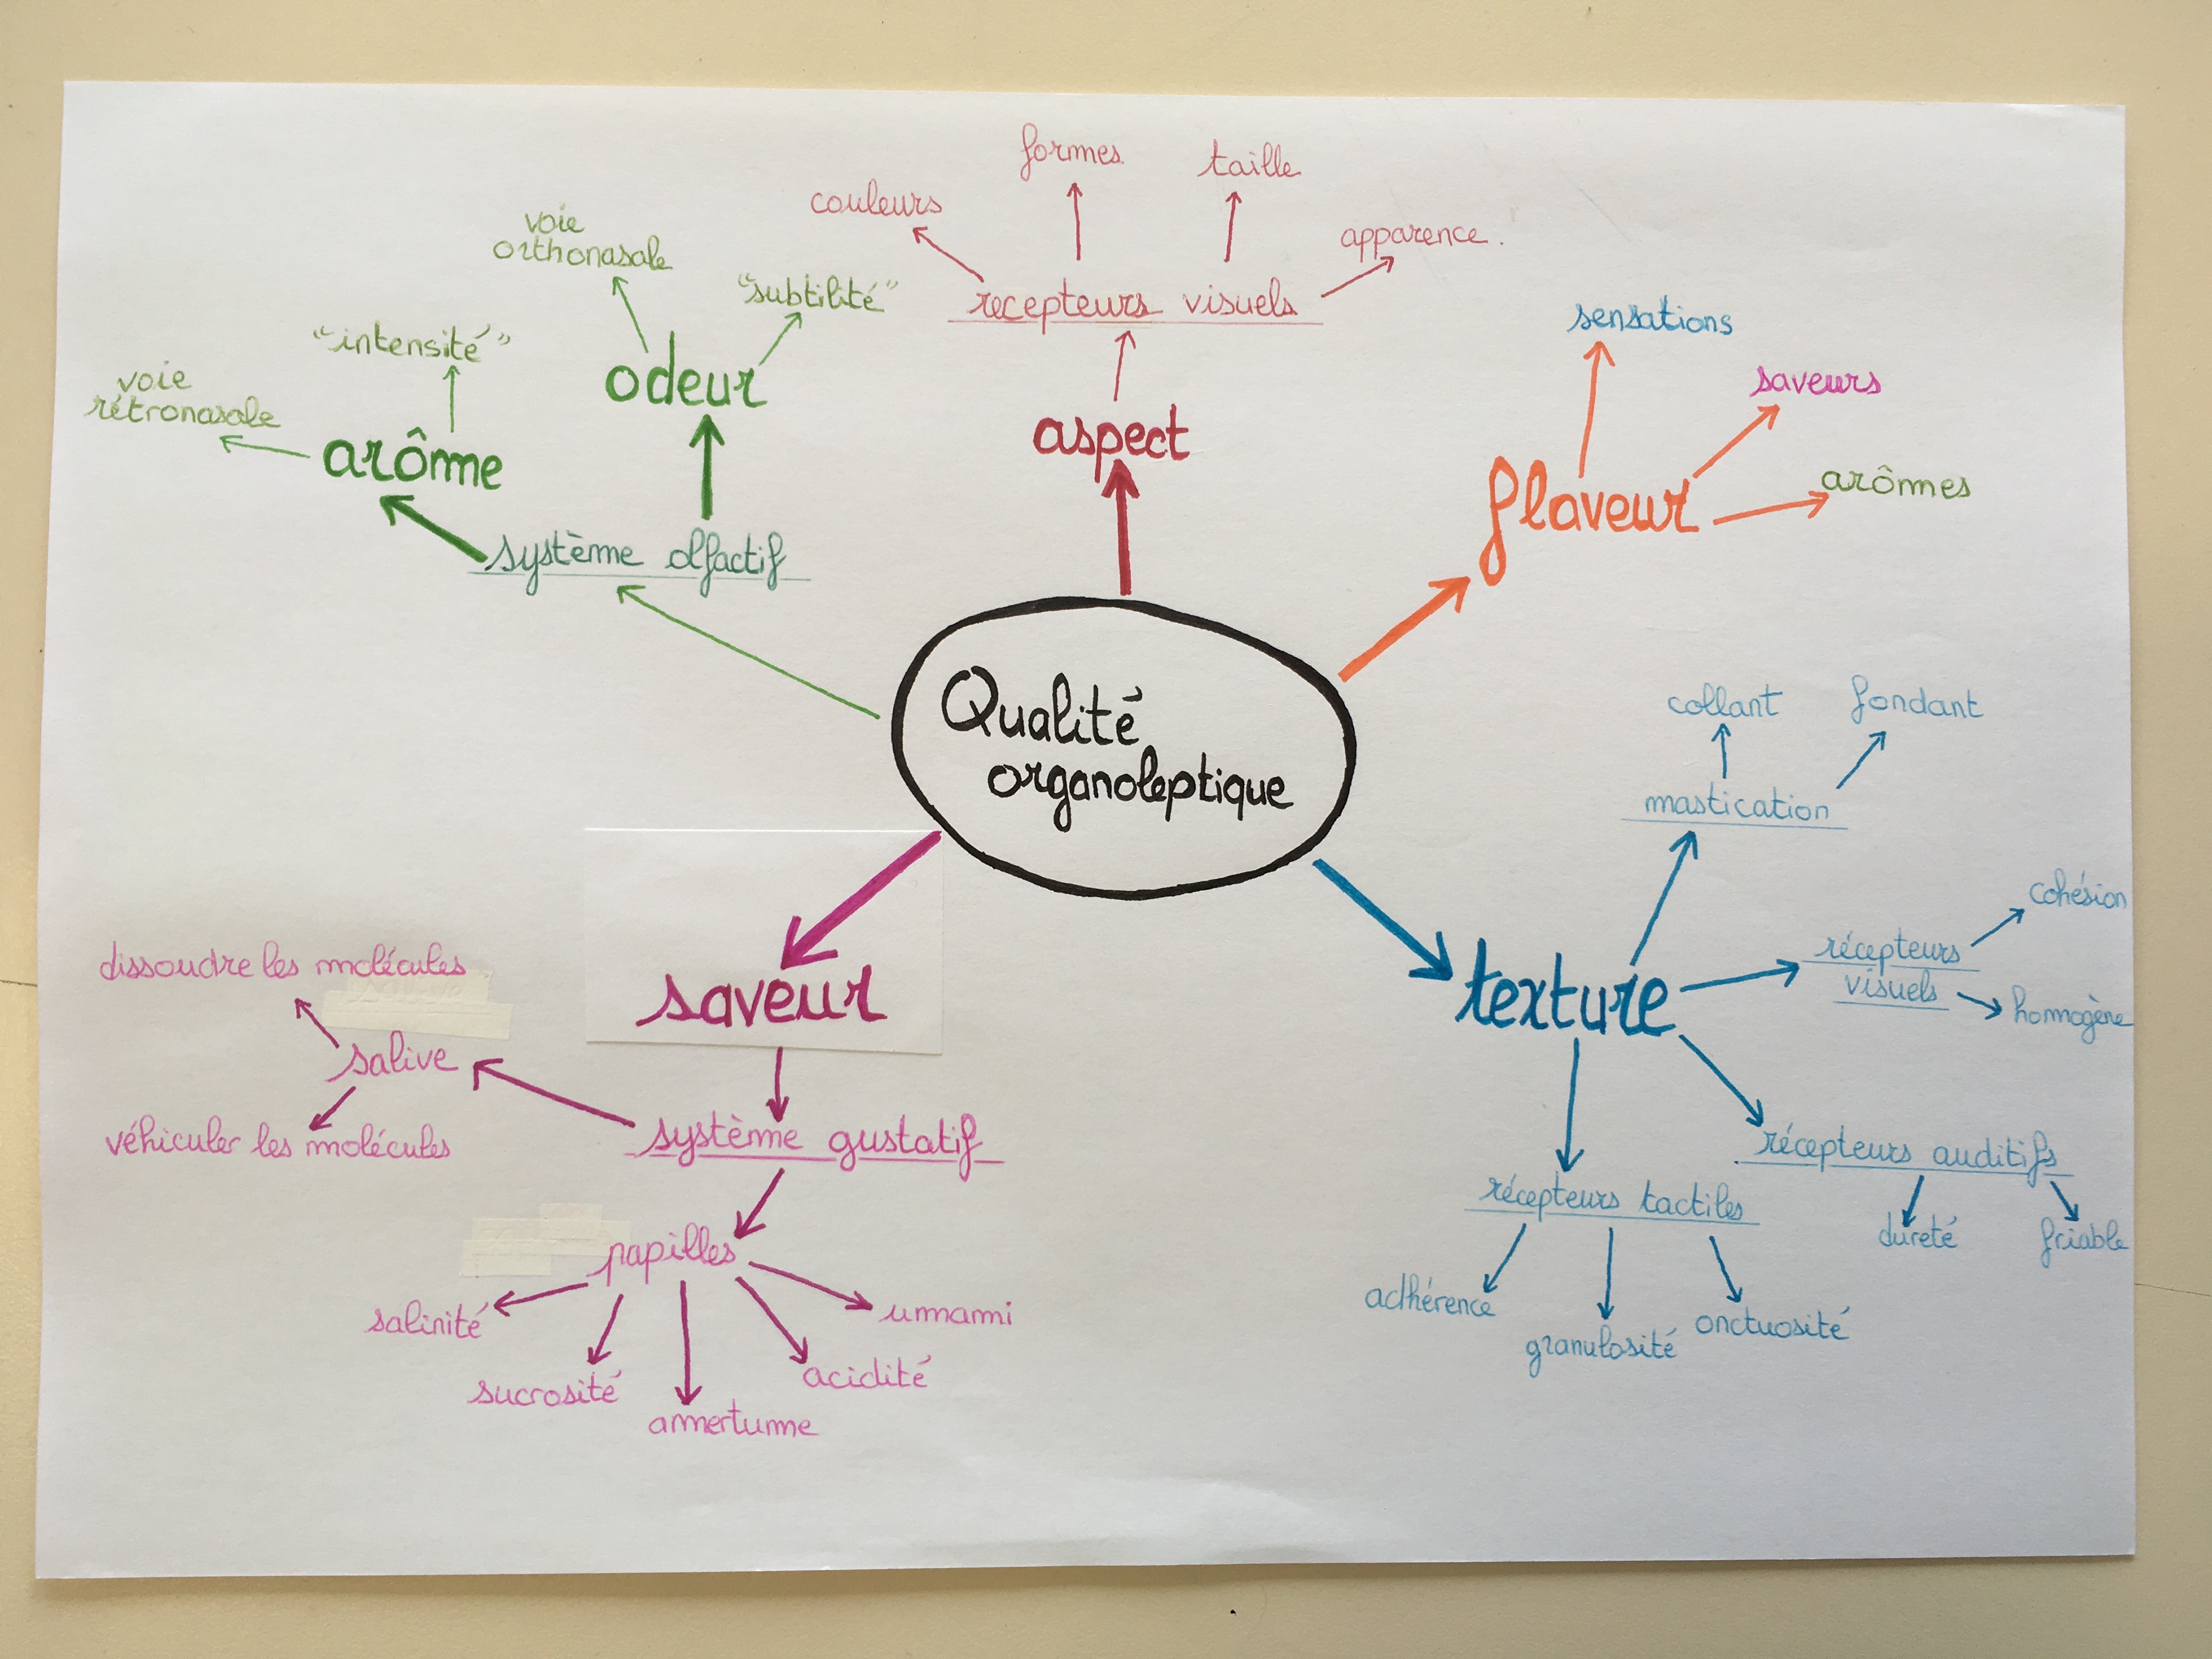 formes
taille
couleurs
apparence.
voie
orthonasale
"subtilité"
recepteurs visuels
sensations
"intensité"
voie
rétronasale
odeur
saveurs
arôme
aspect
flaveur
arômes
système olfactif
Qualité
organoleptique
collant
fondant
mastication
cohésion
récepteurs
visuels
homogène
dissoudre les molécules
saveur
texture
salive
véhiculer les molécules
système gustatif
récepteurs auditifs
récepteurs tactiles
dureté
friable
papilles
salinité
ummami
adhérence
granulosité
onctuosité
sucrosité
acidité
amertume